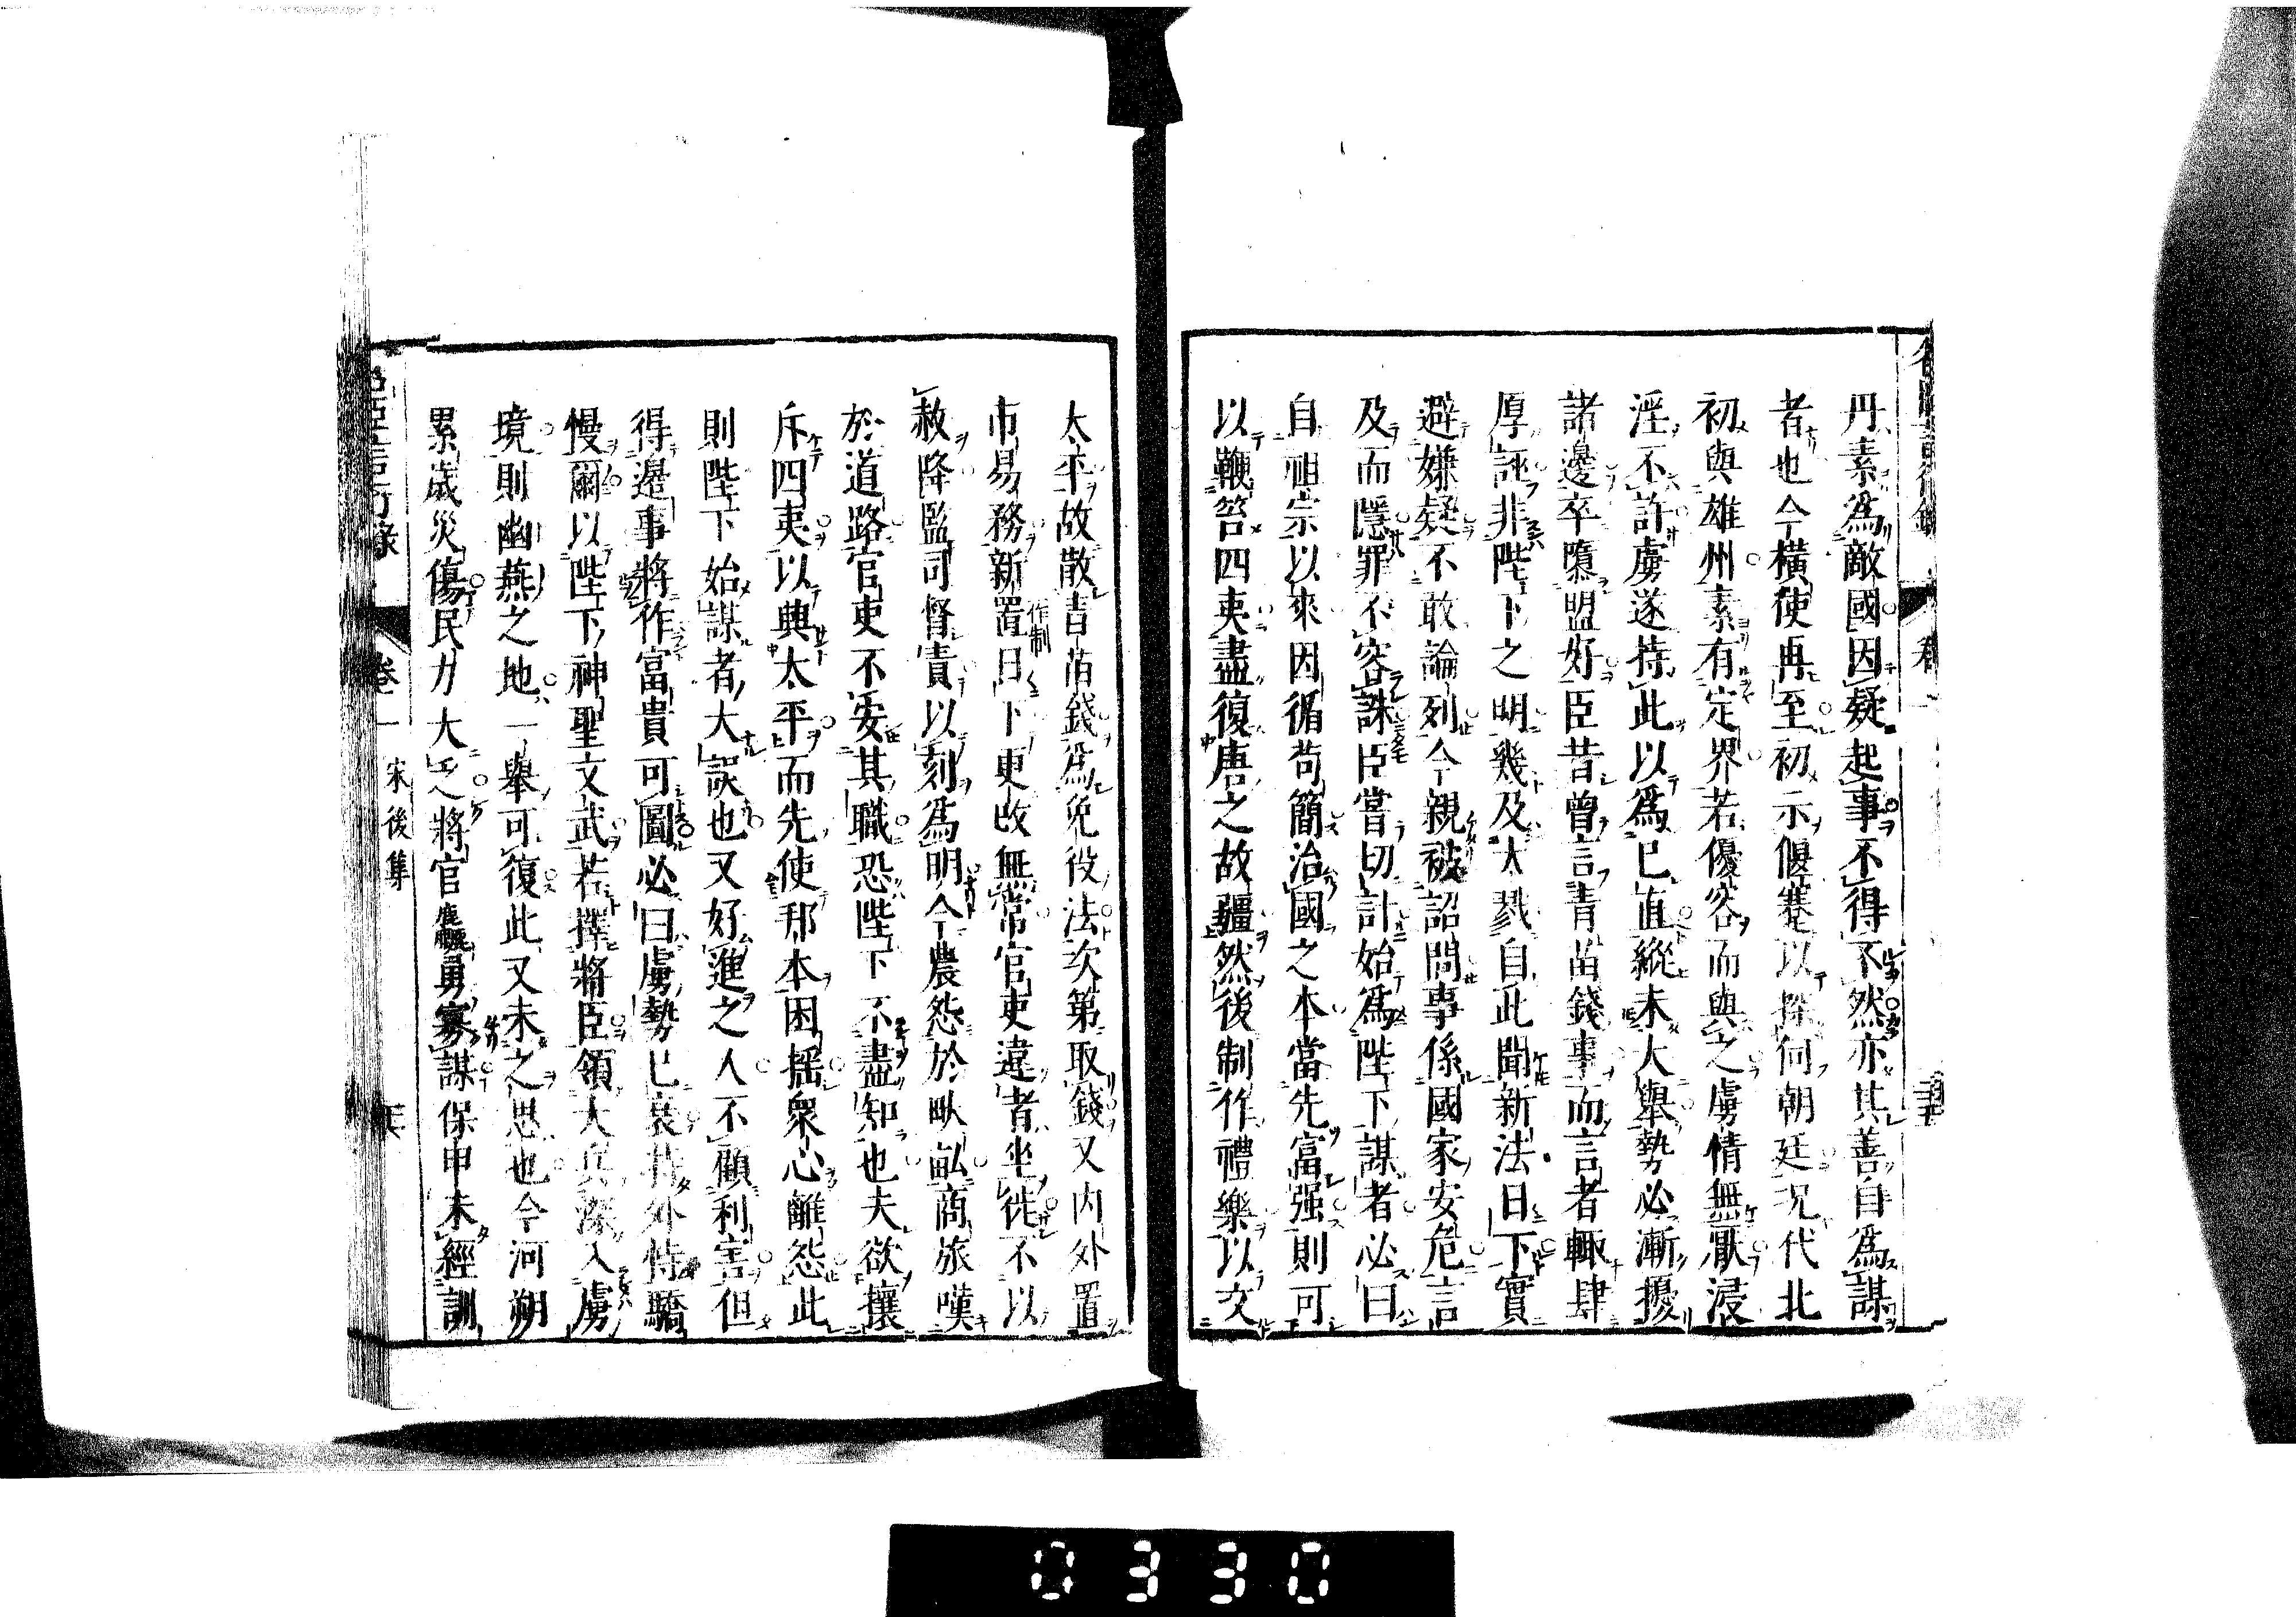 丹素爲敵國因疑起事不得不然亦其善自爲謀
者也今橫使再至初示偃蹇以探伺朝廷况代北
初與雄州素有定界若優容而與之虜情無厭浸
淫不許虜遂持此以爲己直縱未大舉勢必漸擾
諸邊卒隳盟好臣昔曾言青苗錢事而言者輙肆
厚誣非陛下之明幾及大戮自此聞新法日下實
避嫌疑不敢論列今親被詔問事係國家安危言
及而隱罪不容誅臣嘗切計始爲陛下謀者必曰
自祖宗以來因循苟簡治國之本當先富强則可
以鞭笞四夷盡復唐之故疆然後制作禮樂以文
太平故散青苗錢爲免役法次第取錢又内外置
市易務新置日下更改無常官吏違者坐徙不以
作制
赦降監司督責以刻爲明今農怨於畎畝商旅嘆
於道路官吏不安其職恐陛下不盡知也夫欲攘
斥四夷以興太平而先使邦本困揺衆心離怨此
則陛下始謀者大誤也又好進之人不顧利害但
得邊事將作富貴可圖必曰虜勢已衰特外恃驕
慢爾以陛下神聖文武若擇將臣領大兵深入虜
境則幽燕之地一舉可復此又未之思也今河朔
累歲災傷民力大乏將官麤勇寡謀保甲未經訓
卷一
宋後集
0330